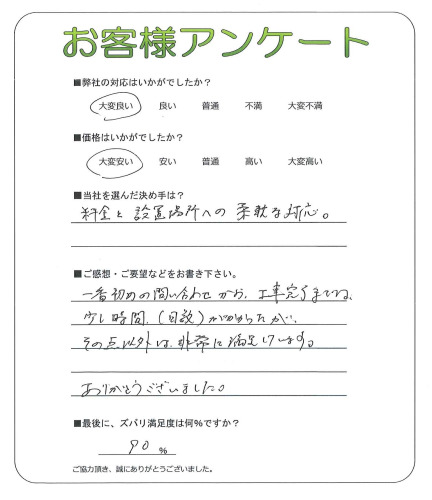 お客様アンケート
■弊社の対応はいかがでしたか？
大変良い 良い 普通 不満 大変不満
■価格はいかがでしたか？
大変安い 安い 普通 高い 大変高い
■当社を選んだ決め手は？
料金と設置場所への柔軟な対応。
■ご感想・ご要望などをお書き下さい。
一番初めの問い合わせから、工事完了まで
少し時間、(日数)がかかったが、
その点以外は、非常に満足しています。
ありがとうございました。
■最後に、ズバリ満足度は何%ですか？
90 %
ご協力頂き、誠にありがとうございました。